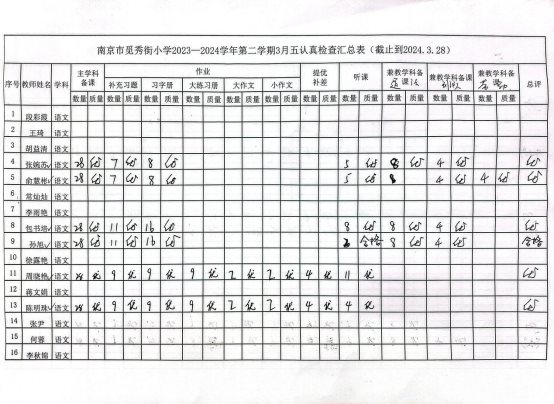 南京市觅秀街小学2023—2024学年第二学期3月五认真检查汇总表（截止到2024.3.28）
序号 教师姓名 学科 主学科备课 作业 提优补差 听课 兼教学科备课 道法 兼教学科备课 兼教学科备课 总评
补充习题 习字册 大练习册 大作文 小作文
数量 质量 数量 质量 数量 质量 数量 质量 数量 质量 数量 质量 数量 质量 数量 质量 数量 质量 数量 质量 数量 质量
1 段彩霞 语文
2 王琦 语文
3 胡益清 语文
4 张婉苏 语文 28 优 7 优 8 优 5 优 8 优 4 优 优
5 俞慧彬 语文 28 优 7 优 8 优 5 优 8 4 优 4 优 优
6 常灿灿 语文
7 李雨艳 语文
8 包书培 语文 28 优 11 优 16 优 8 优 8 优 4 优 优
9 孙旭 语文 28 优 11 优 16 优 2 合格 8 优 4 优 合格
10 徐露艳 语文
11 周晓艳 语文 28 优 9 优 9 优 9 优 2 优 2 优 4 优 11 优 优
12 蒋文娟 语文
13 陈明珠 语文 28 优 9 优 9 优 9 优 2 优 2 优 4 优 4 优 优
14 张尹 语文
15 何蓉 语文
16 李秋锦 语文